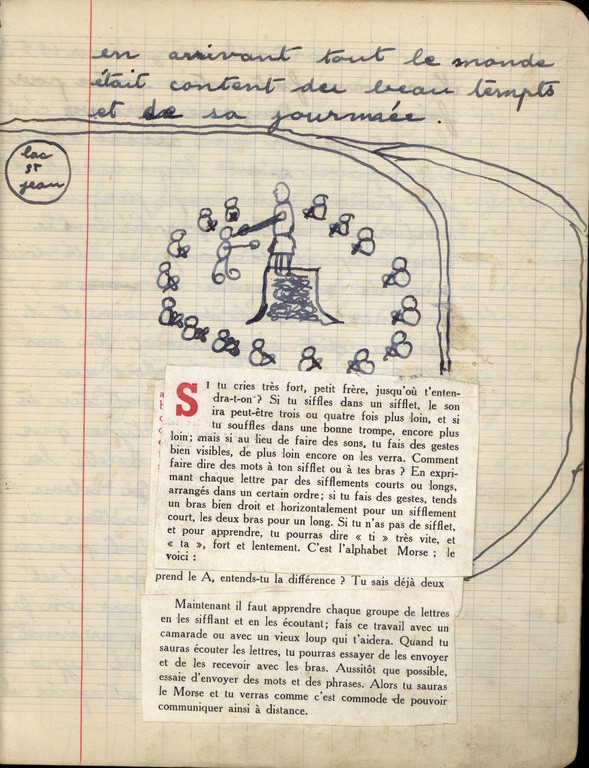 en arrivant tout le monde
était content du beau tempts
et de sa journeée.
lac
st
jean
SI tu cries très fort, petit frère, jusqu'où t'enten-
dra-t-on ? Si tu siffles dans un sifflet, le son
ira peut-être trois ou quatre fois plus loin, et si
tu souffles dans une bonne trompe, encore plus
loin ; mais si au lieu de faire des sons, tu fais des gestes
bien visibles, de plus loin encore on les verra. Comment
faire dire des mots à ton sifflet ou à tes bras ? En expri-
mant chaque lettre par des sifflements courts ou longs,
arrangés dans un certain ordre ; si tu fais des gestes, tends
un bras bien droit et horizontalement pour un sifflement
court, les deux bras pour un long. Si tu n'as pas de sifflet,
et pour apprendre, tu pourras dire « ti » très vite, et
« ta », fort et lentement. C'est l'alphabet Morse ; le
voici :
prend le A, entends-tu la différence ? Tu sais déjà deux
Maintenant il faut apprendre chaque groupe de lettres
en les sifflant et en les écoutant ; fais ce travail avec un
camarade ou avec un vieux loup qui t'aidera. Quand tu
sauras écouter les lettres, tu pourras essayer de les envoyer
et de les recevoir avec les bras. Aussitôt que possible,
essaie d'envoyer des mots et des phrases. Alors tu sauras
le Morse et tu verras comme c'est commode de pouvoir
communiquer ainsi à distance.